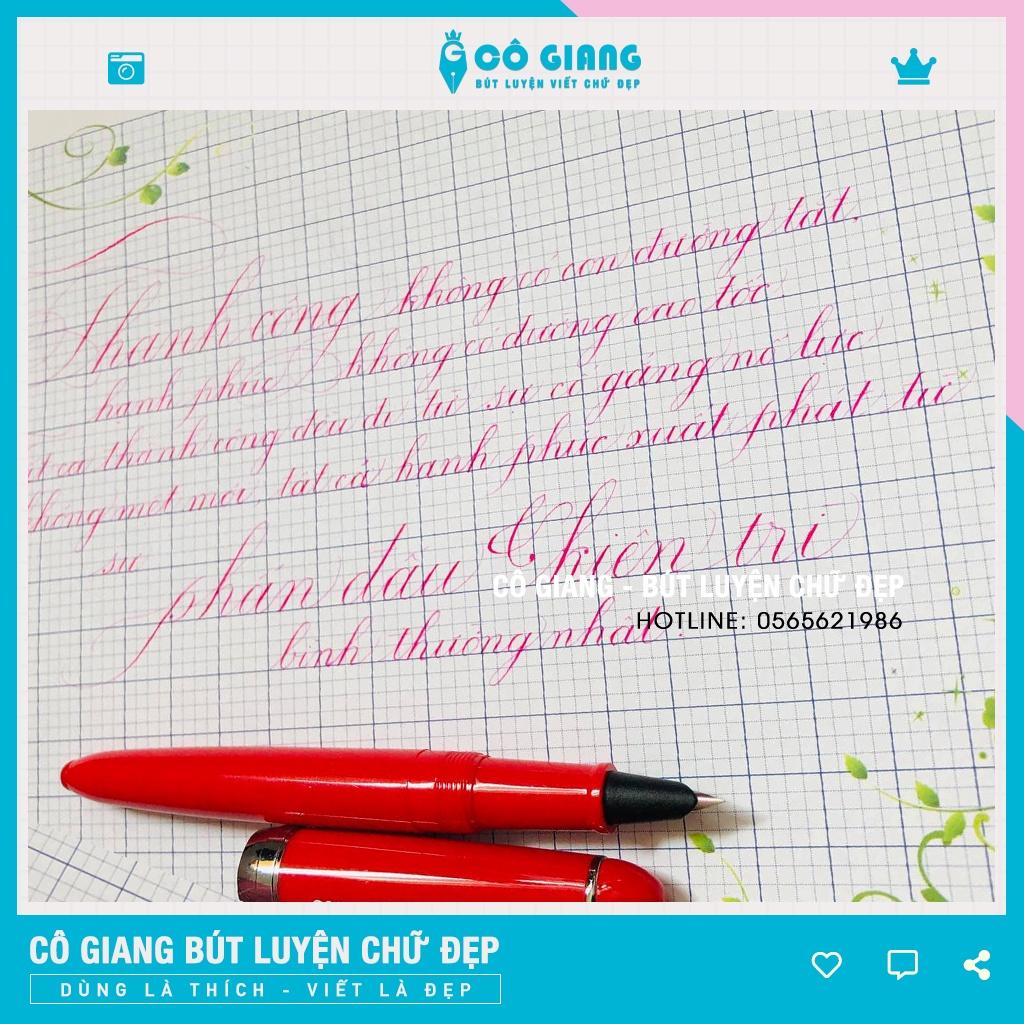 CÔ GIANG
BÚT LUYỆN VIẾT CHỮ ĐẸP
Thành công không có con đường tắt.
hạnh phúc không có đường cao tốc.
tất cả thành công đều đi từ sự cố gắng nỗ lực
không mệt mỏi, tất cả hạnh phúc xuất phát từ
sự phấn đấu Khiên trì
bình thường nhất.
CÔ GIANG - BÚT LUYỆN CHỮ ĐẸP
HOTLINE: 0565621986
CÔ GIANG BÚT LUYỆN CHỮ ĐẸP
DÙNG LÀ THÍCH - VIẾT LÀ ĐẸP